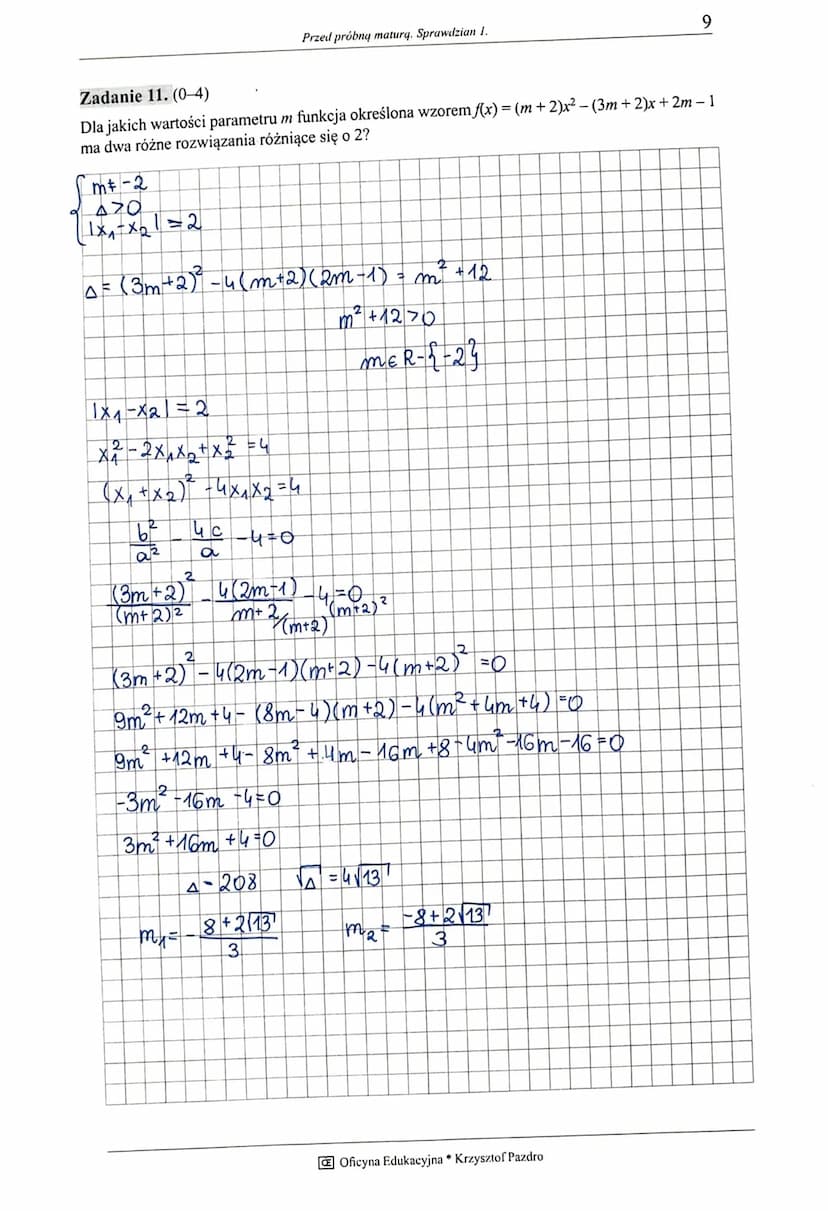 Przed próbną maturą. Sprawdzian 1.
9
Zadanie 11. (0–4)
Dla jakich wartości parametru m funkcja określona wzorem f(x) = (m + 2)x² – (3m + 2)x + 2m – 1
ma dwa różne rozwiązania różniące się o 2?
m ≠ -2
Δ > 0
|x₁-x₂| = 2
Δ = (3m+2)² - 4(m+2)(2m-1) = m² + 12
m² + 12 > 0
m ∈ R - {-2}
|x₁-x₂| = 2
x₁² - 2x₁x₂ + x₂² = 4
(x₁+x₂)² - 4x₁x₂ = 4
b²/a² - 4c/a - 4 = 0
(3m+2)²/(m+2)² - 4(2m-1)/m+2 /(m+2) - 4 = 0 (m+2)²
(3m+2)² - 4(2m-1)(m+2) - 4(m+2)² = 0
9m² + 12m + 4 - (8m-4)(m+2) - 4(m² + 4m + 4) = 0
9m² + 12m + 4 - 8m² + 4m - 16m + 8 - 4m² - 16m - 16 = 0
-3m² - 16m - 4 = 0
3m² + 16m + 4 = 0
Δ = 208 √Δ = 4√13
m₁ = - 8+2√13/3 m₂ = -8+2√13/3
Œ Oficyna Edukacyjna * Krzysztof Pazdro